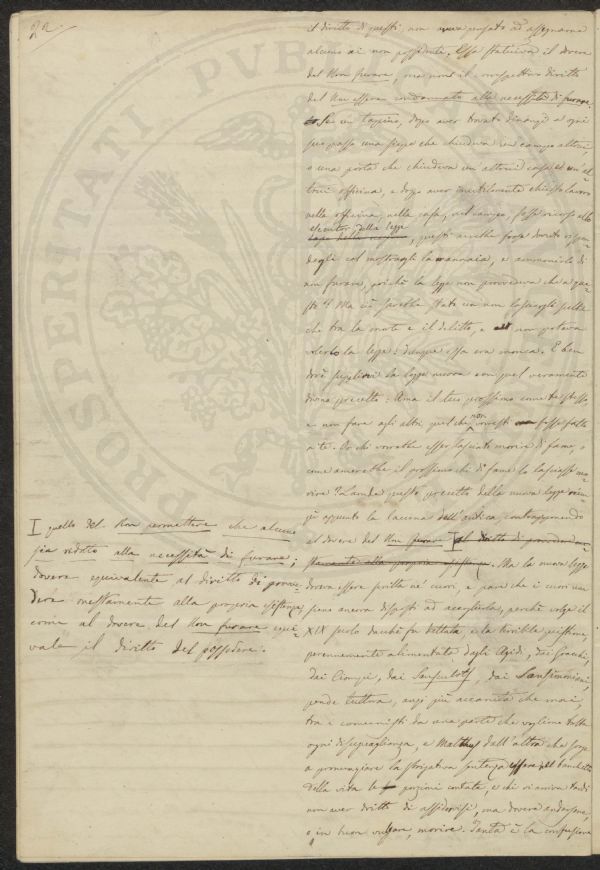 22
il diritto di questi, non aveva pensato ad assegnarne
alcuno ai non possidenti. Essa statuiva il dovere
del Non furare, ma non il rispettivo diritto
del Non essere condannato alla necessità di furare.
Se un tapino, dopo aver trovato dinanzi a ogni
suo passo una siepe che chiudeva un campo altrui
o una porta che chiudeva un'altrui casa e un'al
trui officina, e dopo aver inutilmente chiesto lavoro
nella officina, nella casa, nel campo, fosse ricorso allo
esecutor della legge
questi avrebbe forse dovuto rispon
dergli col mostrargli la mannaia, e ammonirlo di
non furare, poichè la legge non provvedeva che a que
sto? Ma ciò sarebbe stato un non lasciargli scelta
che tra la morte e il delitto, e non poteva
volerlo la legge: dunque essa era monca. E ben
dovè supplirvi la legge nuova con quel veramente
divino precetto: Ama il tuo prossimo come te stesso,
e non fare agli altri quel che non vorresti fosse fatto
a te. Or chi vorrebbe esser lasciato morire di fame, o
come amerebbe il prossimo chi di fame lo lasciasse mo
rire? Laonde questo precetto della nuova legge riem
pì appunto la lacuna dell'antica contrapponendo
al dovere del Non furare
Ma la nuova legge
doveva essere scritta ne' cuori, e pare che i cuori non
sieno ancora disposti ad accoglierla, perchè volge il
XIX secolo dacchè fu dettata, e la terribile quistione,
perennemente alimentata dagli Agidi, dai Gracchi,
dai Ciompi, dai Sanculotti, dai Sansimoniani,
pende tuttora, anzi più accanita che mai,
tra i comunisti da una parte che vogliono tolta
ogni disuguaglianza, e Malthus dall'altra che sorge
a pronunziare la spietata sentenza essere al banchetto
della vita le porzioni contate, e chi vi arriva tardi
non aver dritto di assidervisi, ma doversi andarsene,
o, in buon volgare, morire. Tanta è la confusione
I quello del Non permettere che alcuno
sia ridotto alla necessità di furare;
dovere equivalente al diritto di provve-
dere onestamente alla propria esistenza,
come al dovere del Non furare equi-
vale il diritto del possedere.